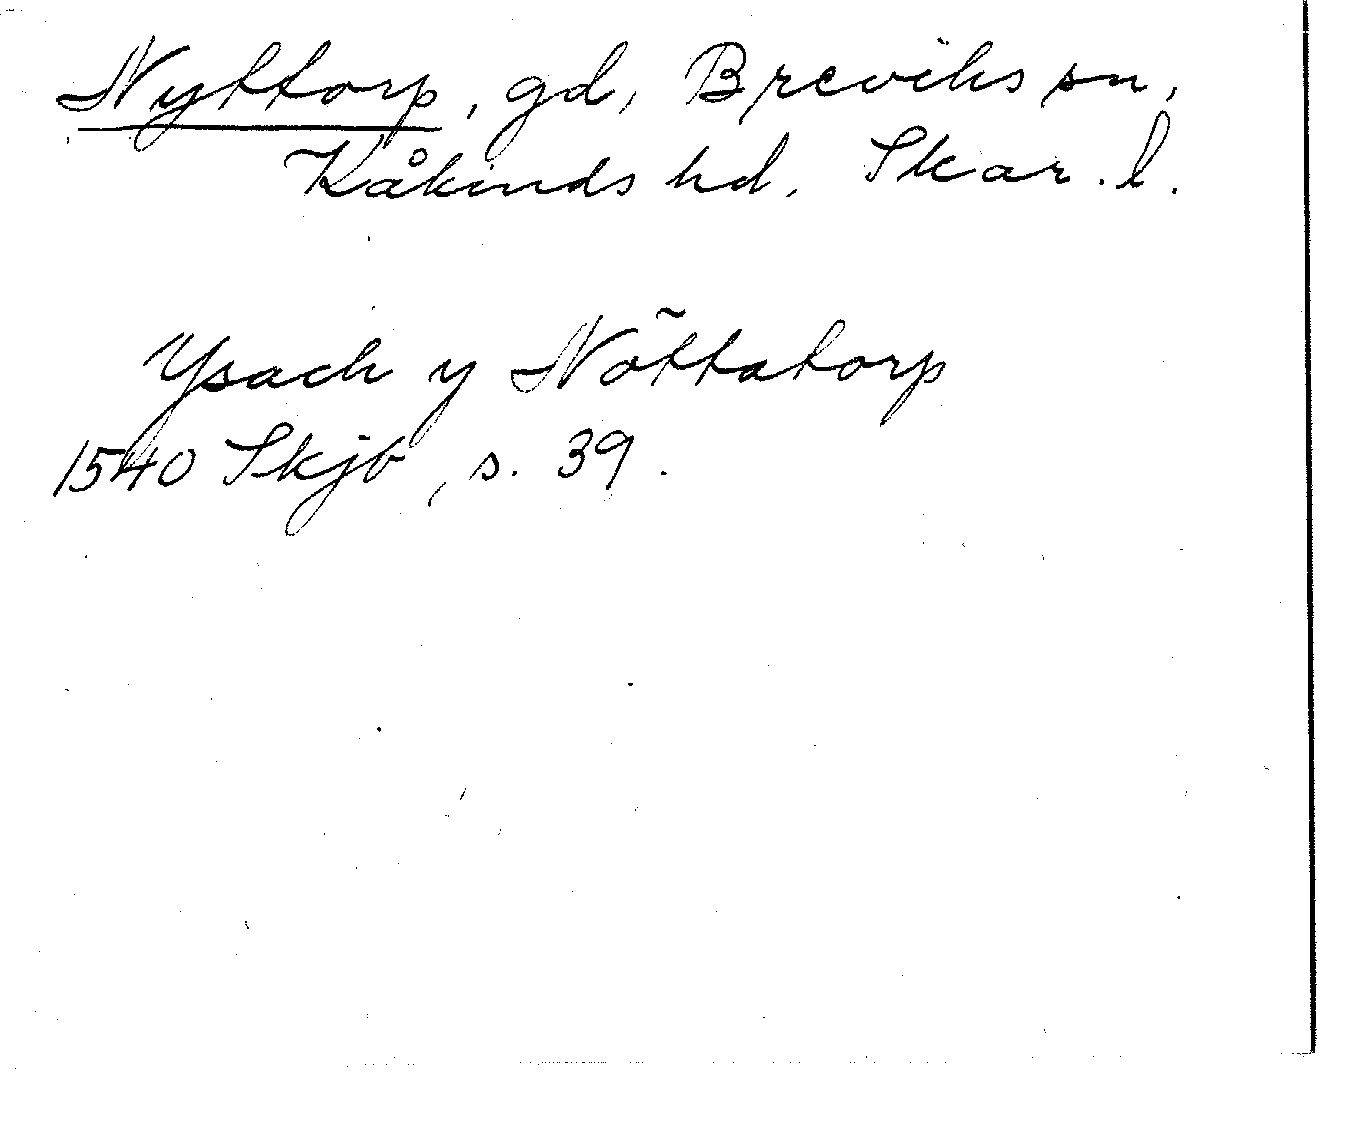 Nyttorp, gd, Breviks sn,
Kåkinds hd. Skar. l.
Ysach y Nõttatorp
1540 Skjb, s. 39.